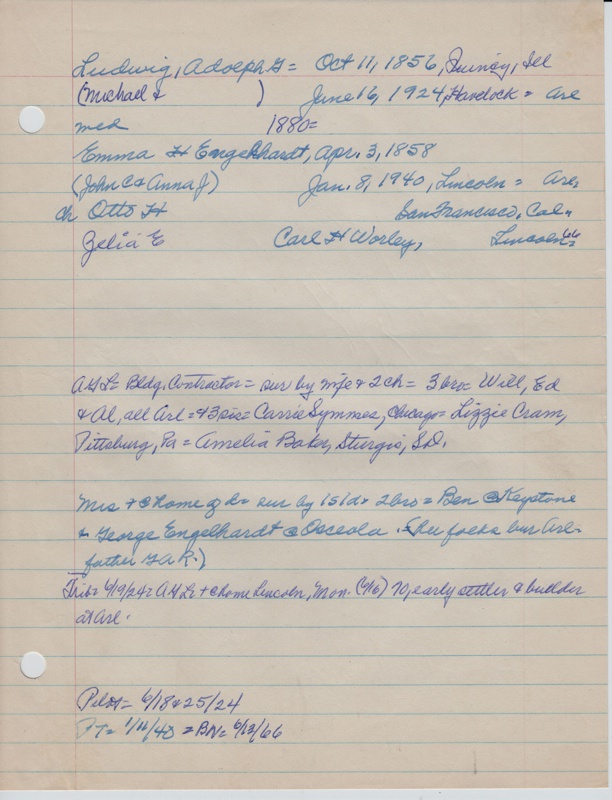 Ludwig, Adolph G = Oct 11, 1856, Quincy, Ill
(Michael & ) June 16, 1924, Havelock = Arl
mcd 1880=
Emma H Engelhardt, Apr. 3, 1858
(John C & Anna J) Jan. 8, 1940, Lincoln = Arl,
ch Otto H San Francisco, Cal.,
Zelia E Carl H Worley, Lincoln 66=
AGL= Bldg. Contractor = sur by wife & 2 ch = 3 bro = Will, Ed
& Al, all Arl = & 3 sis = Carrie Symmes, Chicago = Lizzie Cram,
Pittsburg, Pa = Amelia Baker, Sturgis, S.D.
Mrs + @ home of d = sur by 1s 1d & 2 bro = Ben @ Keystone
& George Engelhardt @ Osceola. (her folks bur Arl-
father GAR.)
Trib= 6/19/24= AGL + @ home Lincoln, Mon. (6/16) 70, early settler & builder
at Arl.
Pilot= 6/18 & 25/24
PT= 1/11/40 = BN= 6/13/66